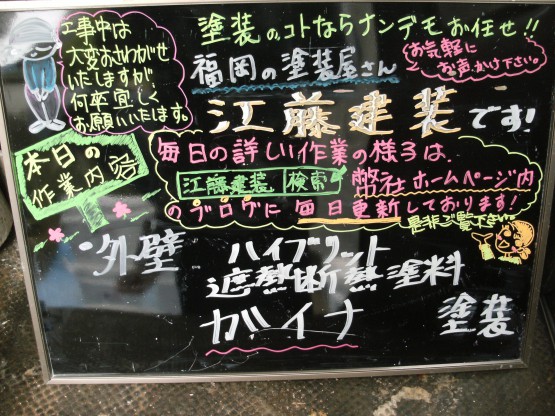 工事中は
大変おさわがせ
いたしますが
何卒宜しく
お願いいたします。
塗装のコトならナンデモお任せ!!
福岡の塗装屋さん
お気軽に
お声かけ下さい。
江藤建装です!
本日の
作業内容
毎日の詳しい作業の様子は、
江藤建装 検索 弊社ホームページ内
のブログに毎日更新しております!
是非ご覧下さい
外壁
ハイブリット
遮熱断熱塗料
ガイナ
塗装